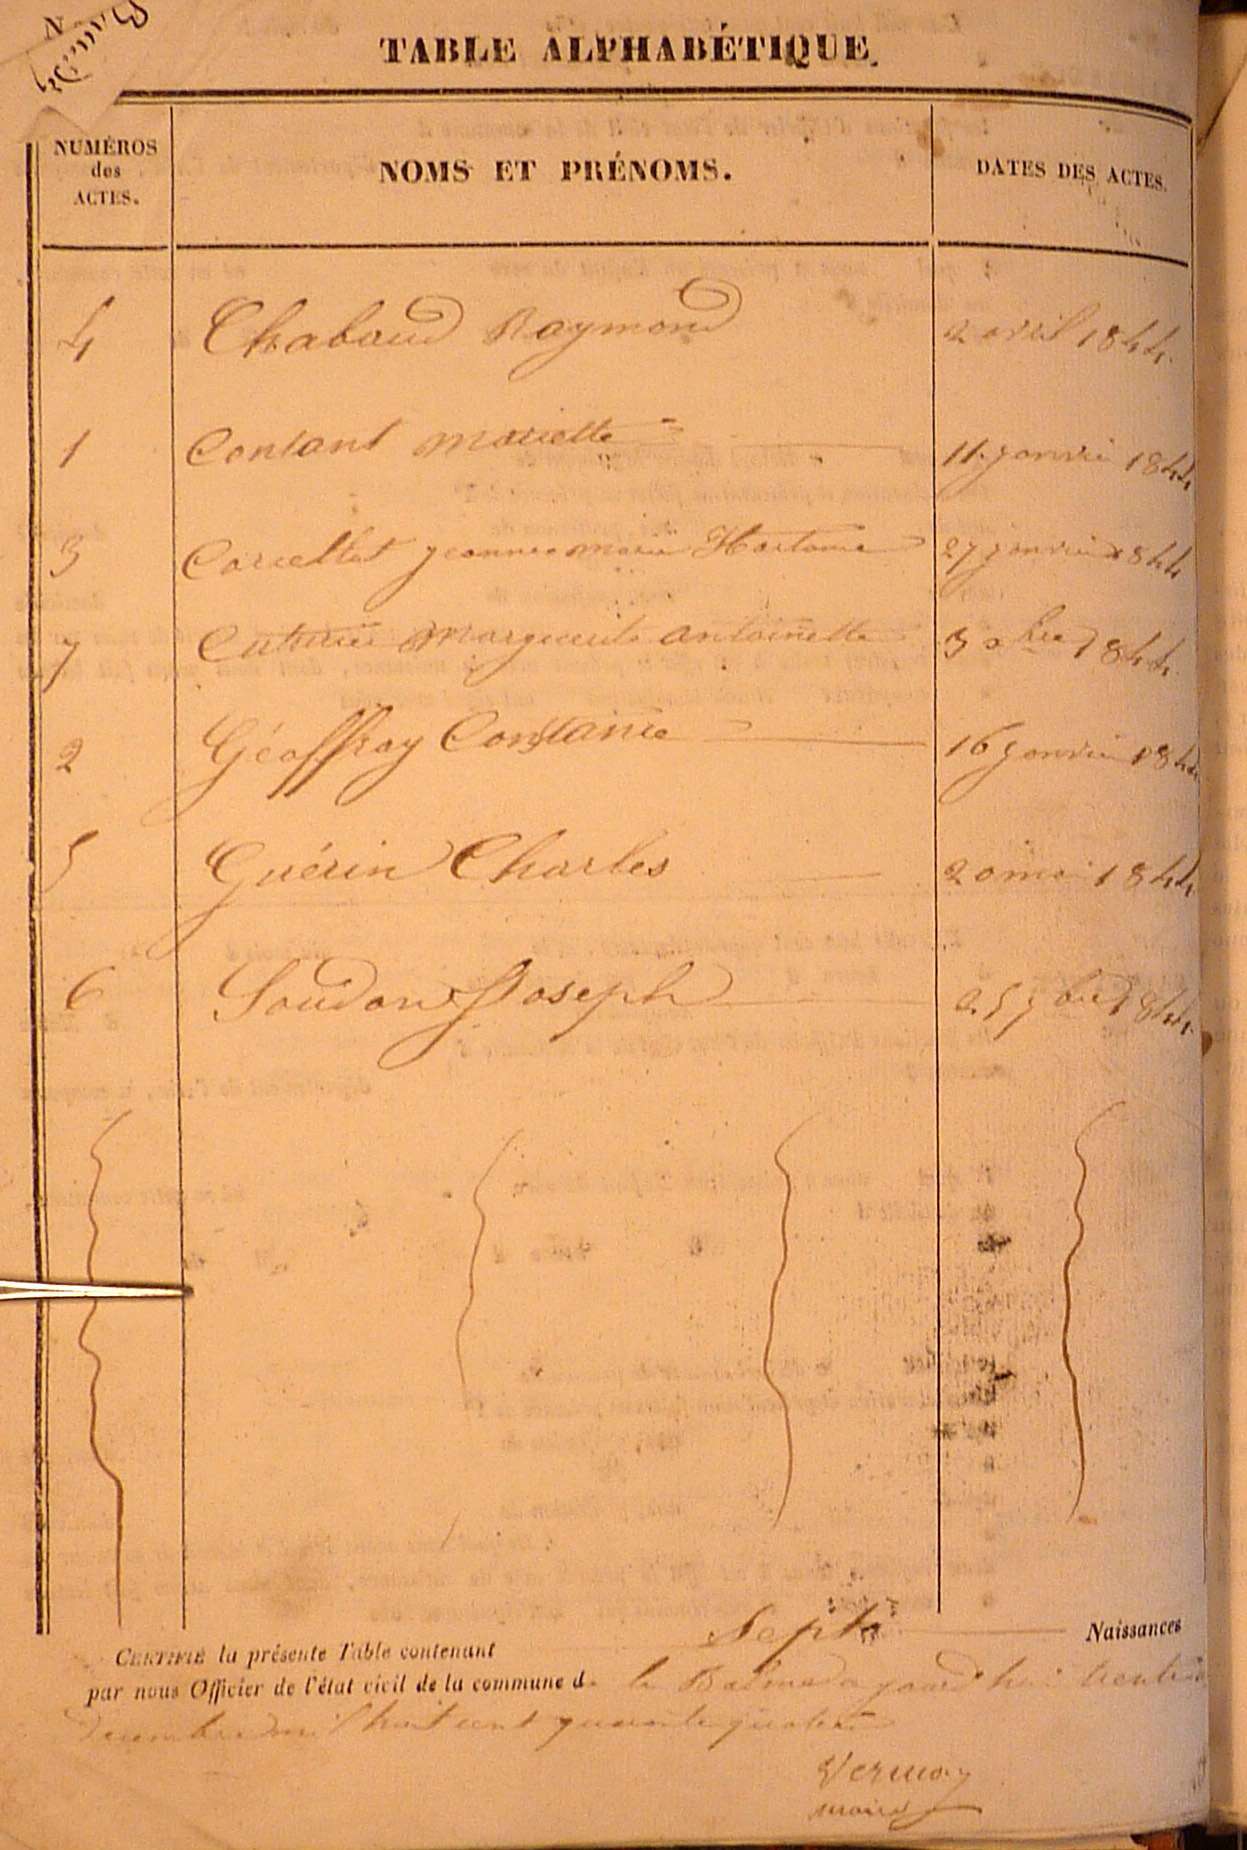 TABLE ALPHABÉTIQUE.
NUMÉROS
des
ACTES.
NOMS ET PRÉNOMS.
DATES DES ACTES.
4 Chabaud Raymond 2 avril 1844.
1 Contant Mariette 11 janvier 1844
3 Corcellet jeanne marie 27 janvier 1844
7 Marguerite antoinette 3 xbre 1844.
2 Géoffray Constance 16 janvier 1844
5 Guérin Charles 20 mai 1844
6 Soudon Joseph 25 7bre 1844.
Sept Naissances
CERTIFIÉ la présente Table contenant
par nous Officier de l'état civil de la commune de la Balme aujourd'hui trente un
décembre mil huit cent quarante quatre
Vernay
maire